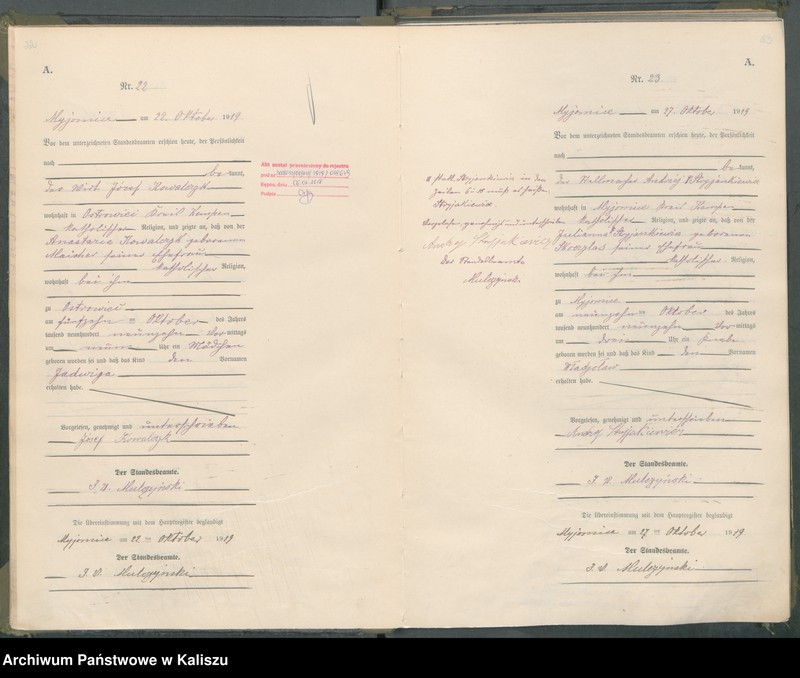 A.
Nr. 22
Myjomice am 22. Oktober 1919.
Vor dem unterzeichneten Standesbeamten erschien heute, der Persönlichkeit
nach
be kannt,
der Wirt Józef Kowalczyk
wohnhaft in Ostrowiec Kreis Kempen
katholischer Religion, und zeigte an, daß von der
Anastazie Kowalczyk geborenen
seiner Ehefrau
katholischer Religion,
wohnhaft bei ihm
zu Ostrowiec
am fünfzehn ten Oktober des Jahres
tausend neunhundert neunzehn Vor mittags
um neun Uhr ein Mädchen
geboren worden sei und daß das Kind den Vornamen
Jadwiga
erhalten habe.
Vorgelesen, genehmigt und unterschrieben
Józef Kowalczyk
Der Standesbeamte.
I. V. Mulczyński
Die Übereinstimmung mit dem Hauptregister beglaubigt
Myjomice am 22 ten Oktober 1919
Der Standesbeamte.
I. V. Mulczyński
Akt został przeniesiony do rejestru
pod nr
Kępno, dnia
Podpis
A.
Nr. 23
Myjomice am 27. Oktober 1919
Vor dem unterzeichneten Standesbeamten erschien heute, der Persönlichkeit
nach
be kannt,
der Stellmacher
wohnhaft in Myjomice Kreis Kempen
katholischer Religion, und zeigte an, daß von der
Julianna geborenen
seiner Ehefrau
katholischer Religion,
wohnhaft bei ihm
zu Myjomice
am neunzehn ten Oktober des Jahres
tausend neunhundert neunzehn Vor mittags
um drei Uhr ein Knabe
geboren worden sei und daß das Kind den Vornamen
Władysław
erhalten habe.
Vorgelesen, genehmigt und unterschrieben
Der Standesbeamte.
I. V. Mulczyński
Die Übereinstimmung mit dem Hauptregister beglaubigt
Myjomice am 27 ten Oktober 1919
Der Standesbeamte.
I. V. Mulczyński
in den
Zeilen 6 muß es heißen
Vorgelesen genehmigt und unterschrieben
Der Standesbeamte
Mulczyński
Archiwum Państwowe w Kaliszu